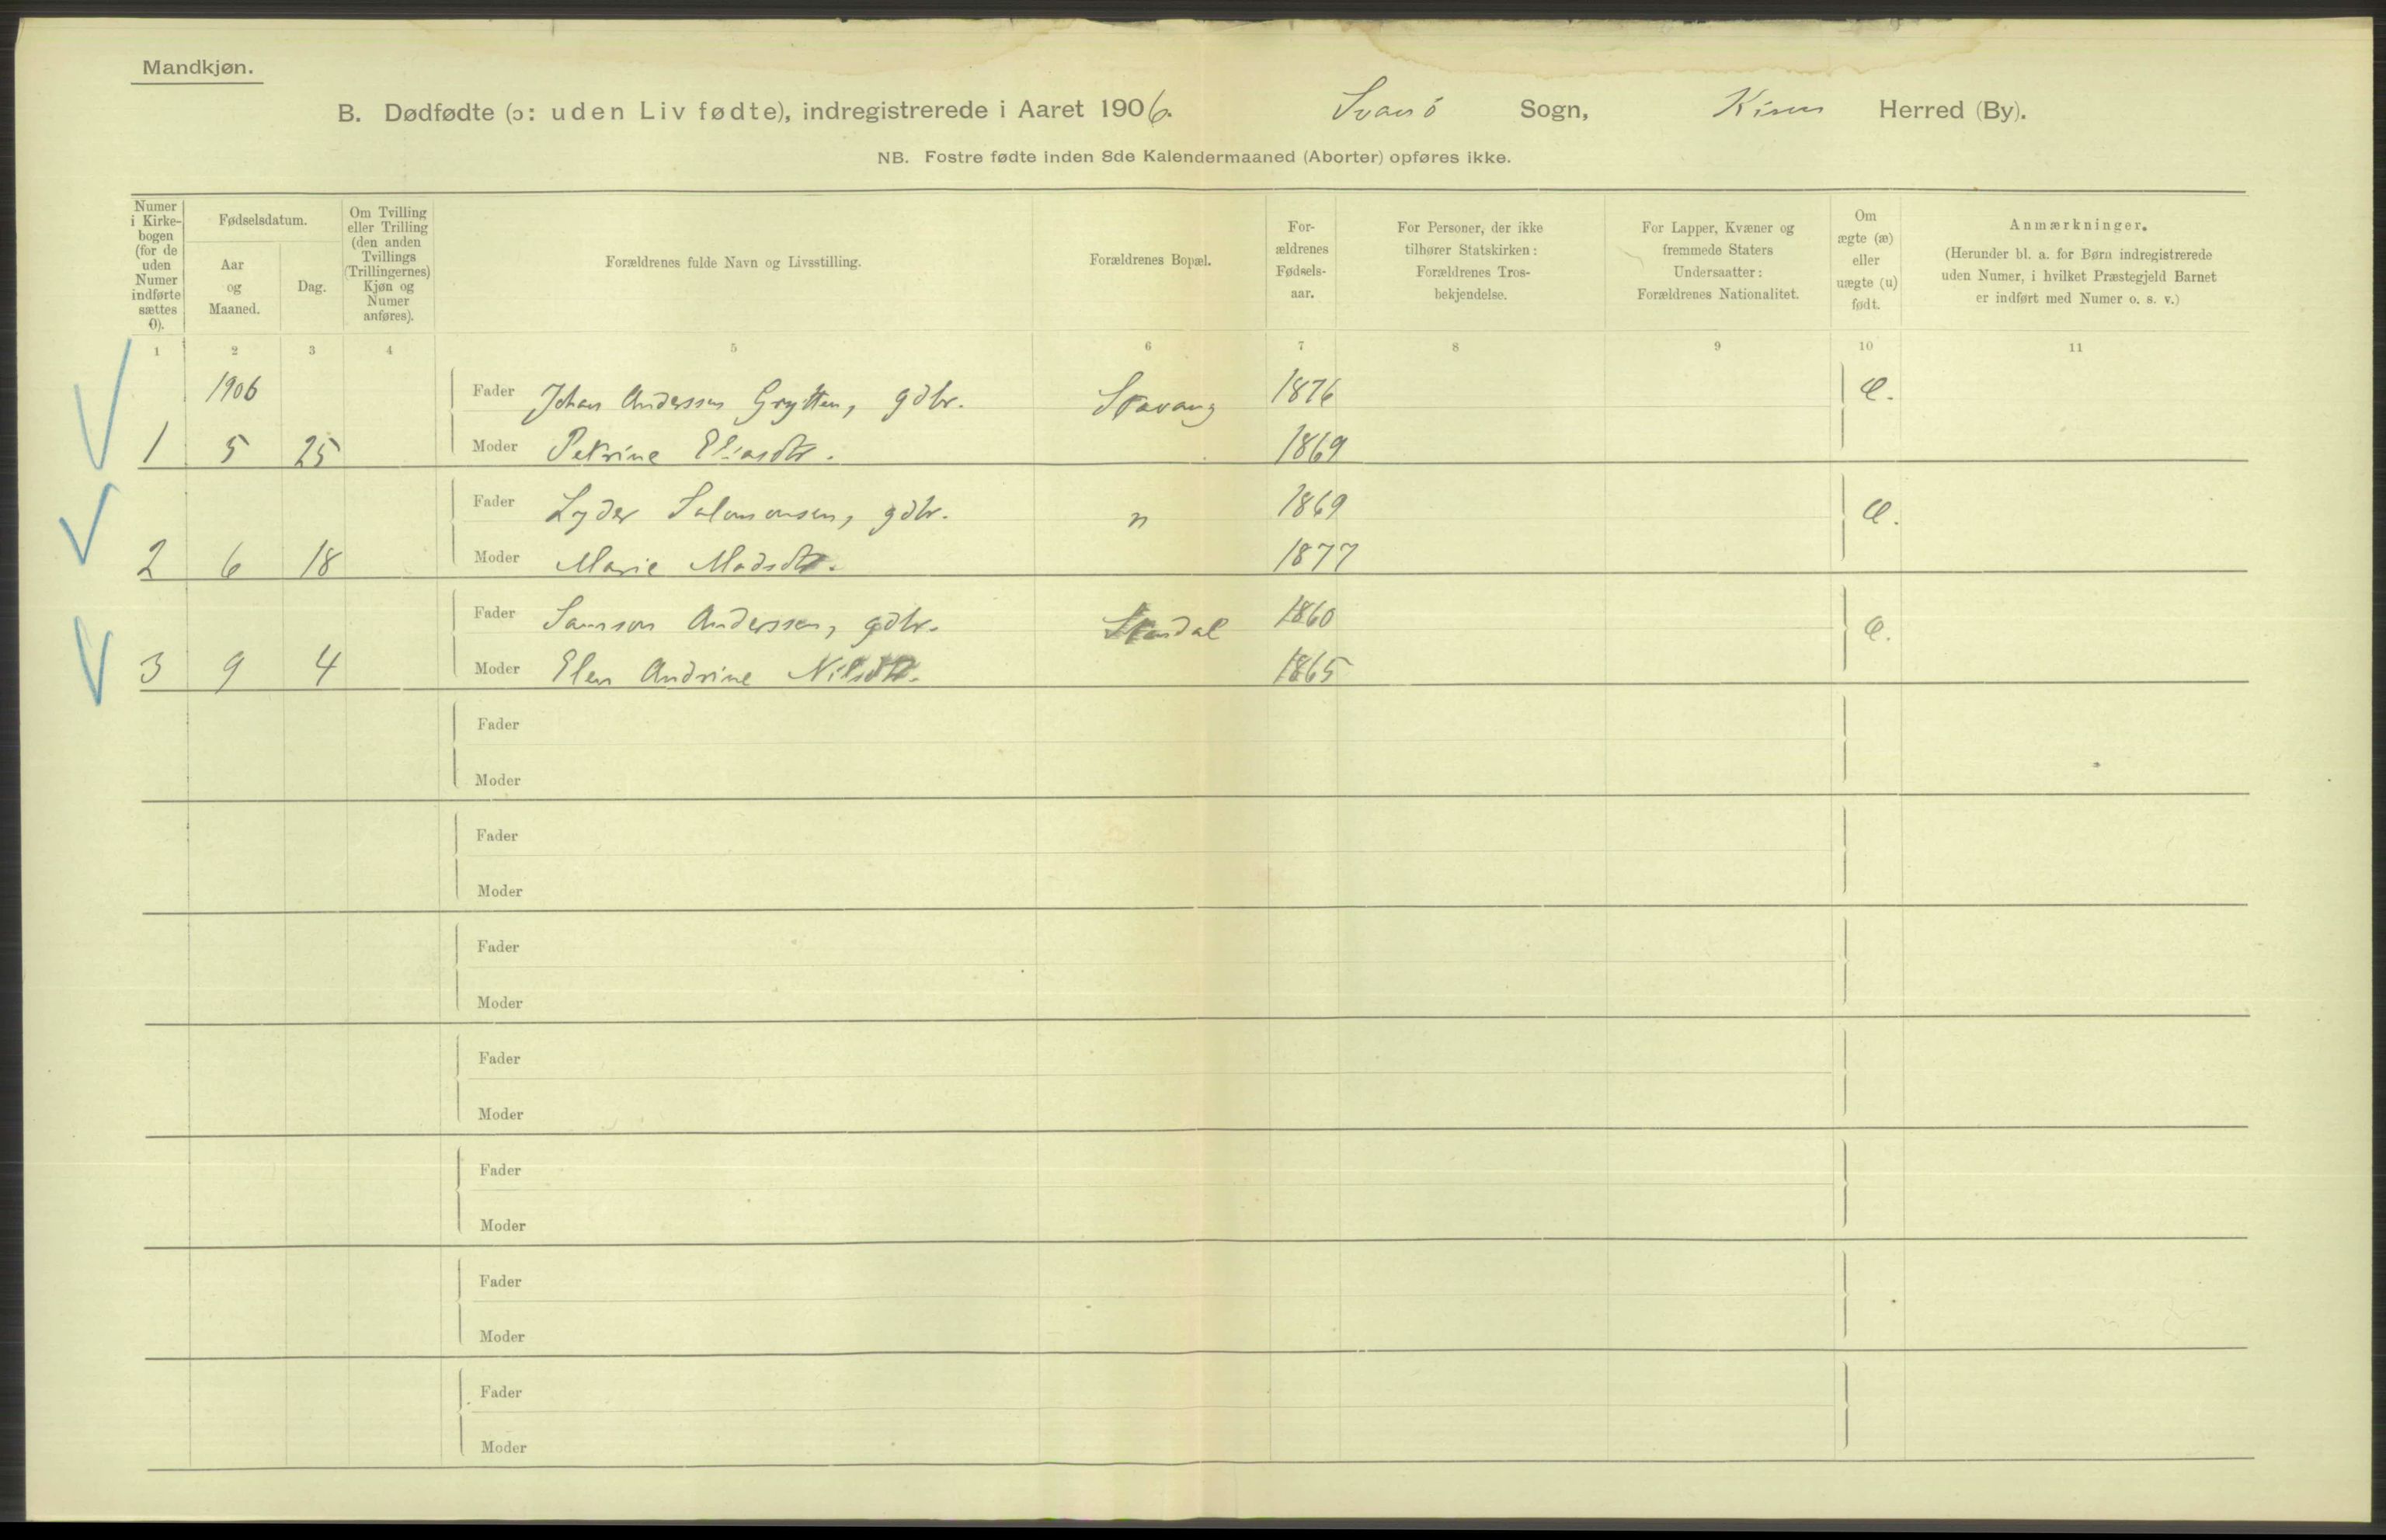 Mandkjøn.
B. Dødfødte (ɔ: uden Liv fødte), indregistrerede i Aaret 1906. Svanö Sogn, Kinn Herred (By).
NB. Fostre fødte inden 8de Kalendermaaned (Aborter) opføres ikke.
Numer i Kirke-bogen (for de uden Numer indførte sættes 0).
Fødselsdatum.
Aar og Maaned.
Dag.
Om Tvilling eller Trilling (den anden Tvillings (Trillingernes) Kjøn og Numer anføres).
Forældrenes fulde Navn og Livsstilling.
Forældrenes Bopæl.
For-ældrenes Fødsels-aar.
For Personer, der ikke tilhører Statskirken: Forældrenes Tros-bekjendelse.
For Lapper, Kvæner og fremmede Staters Undersaatter: Forældrenes Nationalitet.
Om ægte (æ) eller uægte (u) født.
Anmærkninger. (Herunder bl. a. for Børn indregistrerede uden Numer, i hvilket Præstegjeld Barnet er indført med Numer o. s. v.)
1 2 3 4 5 6 7 8 9 10 11
1906 Fader Johan Anderssen Grytten, gdbr. Stavang 1876 Æ.
1 5 25 Moder Petrine Eliasdtr. 1869
Fader Lyder Salomonsen, gdbr. " 1869 Æ.
2 6 18 Moder Marie Madsdtr. 1877
Fader Samson Anderssen, gdbr. 1860 Æ.
3 9 4 Moder Elen Andrine Nilsdtr. 1865
Fader
Moder
Fader
Moder
Fader
Moder
Fader
Moder
Fader
Moder
Fader
Moder
Fader
Moder